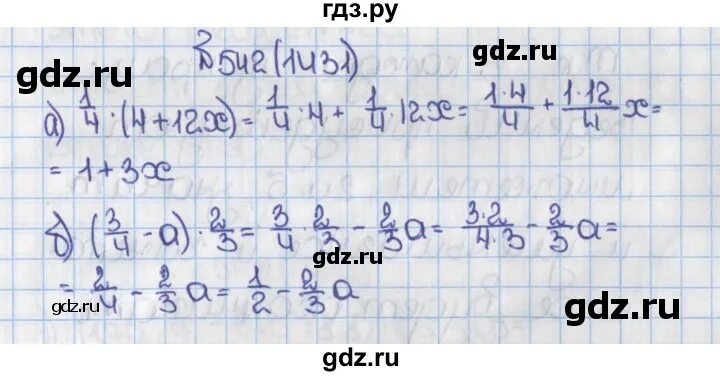 гдз.ру
№542(1431)
gdz.ru gdz.ru
а) 1/4 · (4 + 12x) = 1/4 · 4 + 1/4 · 12x = 1·4/4 + 1·12/4 x =
= 1 + 3x
б) (3/4 - a) · 2/3 = 3/4 · 2/3 - 2/3 a = 3·2/4·3 - 2/3 a =
gdz.ru
= 2/4 - 2/3 a = 1/2 - 2/3 a
gdz.ru gdz.ru
gdz.ru